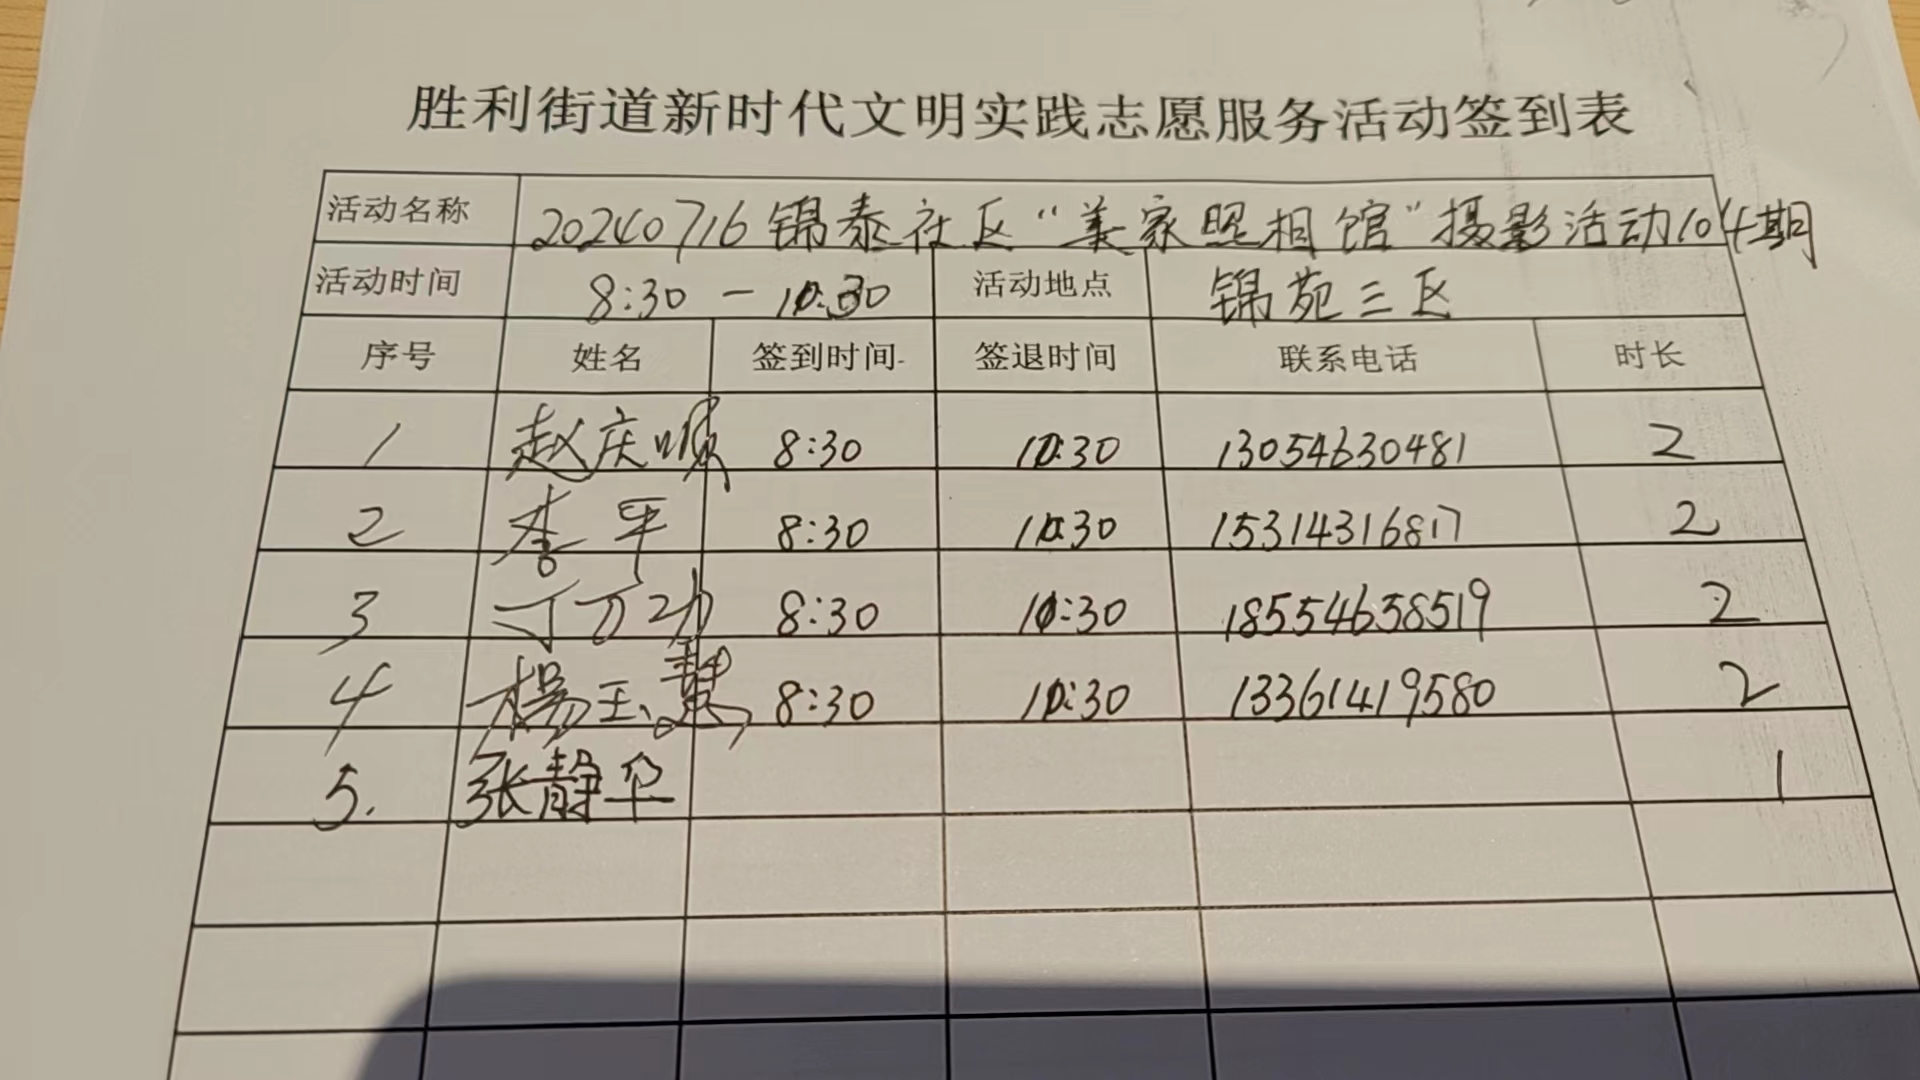 胜利街道新时代文明实践志愿服务活动签到表
活动名称 20240716锦泰社区“美家照相馆”摄影活动104期
活动时间 8:30 — 10:30 活动地点 锦苑三区
序号 姓名 签到时间 签退时间 联系电话 时长
1 赵庆顺 8:30 10:30 13054630481 2
2 李平 8:30 10:30 15314316817 2
3 丁万功 8:30 10:30 18554658519 2
4 杨玉慧 8:30 10:30 13361419580 2
5. 张静华 1